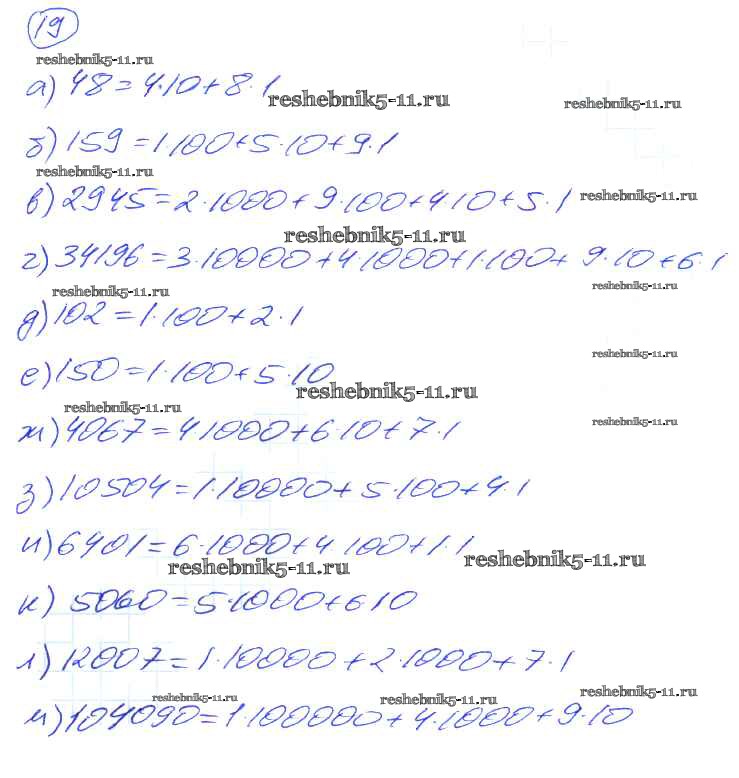 19
reshebnik5-11.ru
а) 48=4·10+8·1
reshebnik5-11.ru
reshebnik5-11.ru
б) 159=1·100+5·10+9·1
reshebnik5-11.ru
в) 2945=2·1000+9·100+4·10+5·1
reshebnik5-11.ru
reshebnik5-11.ru
г) 34196=3·10000+4·1000+1·100+9·10+6·1
reshebnik5-11.ru
reshebnik5-11.ru
д) 102=1·100+2·1
reshebnik5-11.ru
е) 150=1·100+5·10
reshebnik5-11.ru
reshebnik5-11.ru
ж) 4067=4·1000+6·10+7·1
reshebnik5-11.ru
з) 10504=1·10000+5·100+4·1
и) 6401=6·1000+4 100+1·1
reshebnik5-11.ru
reshebnik5-11.ru
к) 5060=5·1000+6·10
л) 12007=1·10000+2·1000+7·1
reshebnik5-11.ru
reshebnik5-11.ru
reshebnik5-11.ru
м) 104090=1·100000+4·1000+9·10